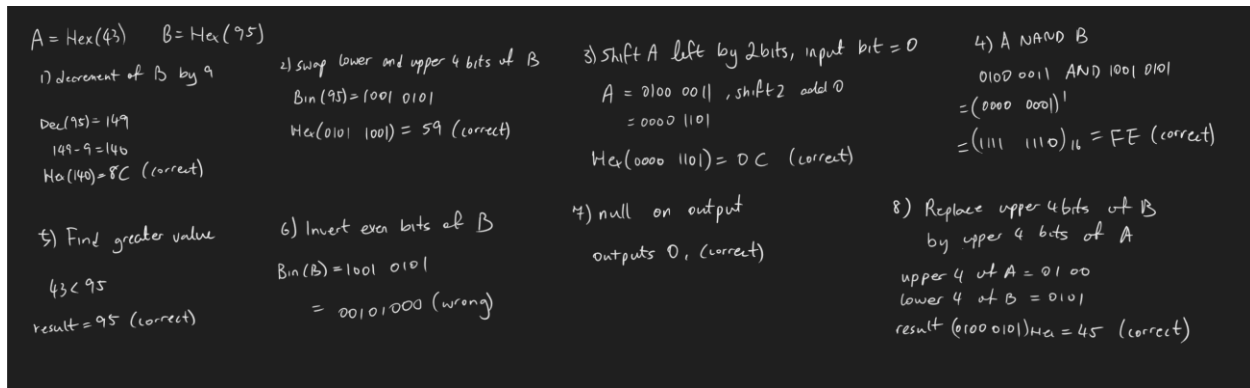 A = Hex(43) B = Hex(95)
1) decrement of B by 9
Dec(95) = 149
149 - 9 = 140
Hex(140) = 8C (correct)
2) swap lower and upper 4 bits of B
Bin(95) = 1001 0101
Hex(0101 1001) = 59 (correct)
3) Shift A left by 2 bits, input bit = 0
A = 0100 0011, shift 2 add 0
= 0000 1101
Hex(0000 1101) = 0C (correct)
4) A NAND B
0100 0011 AND 1001 0101
= (0000 0001)'
= (1111 1110)16 = FE (correct)
5) Find greater value
43 < 95
result = 95 (correct)
6) Invert even bits of B
Bin(B) = 1001 0101
= 00101000 (wrong)
7) null on output
outputs 0, (correct)
8) Replace upper 4 bits of B
by upper 4 bits of A
upper 4 of A = 01 00
lower 4 of B = 0101
result (0100 0101)Hex = 45 (correct)